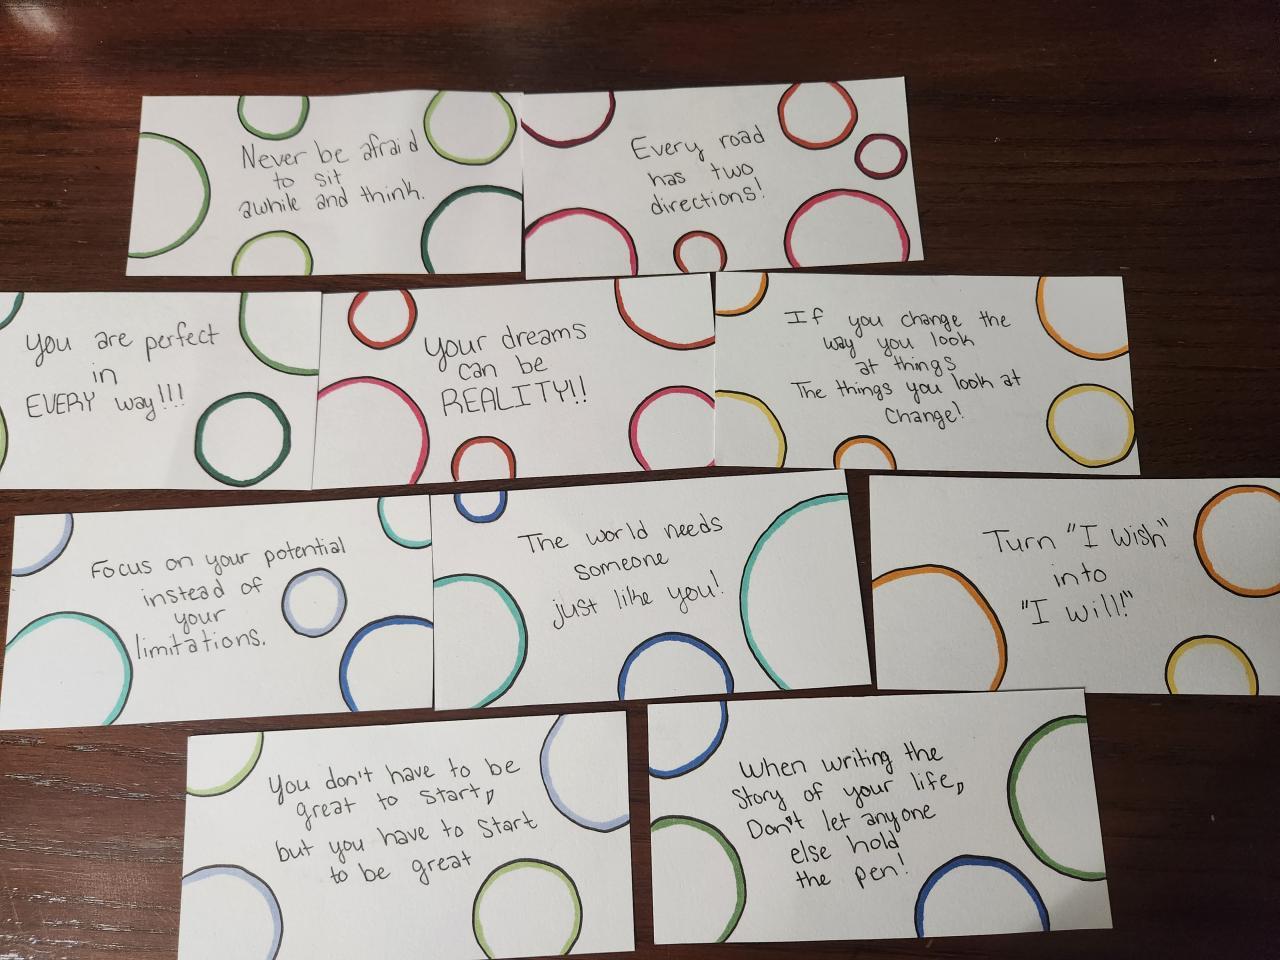 Never be afraid
to sit
awhile and think.
Every road
has two
directions!
You are perfect
in
EVERY way!!!
Your dreams
can be
REALITY!!
If you change the
way you look
at things
The things you look at
Change!
Focus on your potential
instead of
your
limitations.
The world needs
someone
just like you!
Turn "I wish"
into
"I will!"
You don't have to be
great to start,
but you have to start
to be great
When writing the
Story of your life,
Don't let anyone
else hold
the pen!